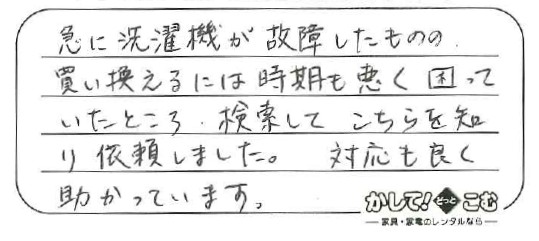 急に洗濯機が故障したものの、
買い換えるには時期も悪く困って
いたところ、検索してこちらを知
り依頼しました。 対応も良く
助かっています。
かして!どっとこむ
家具・家電のレンタルなら